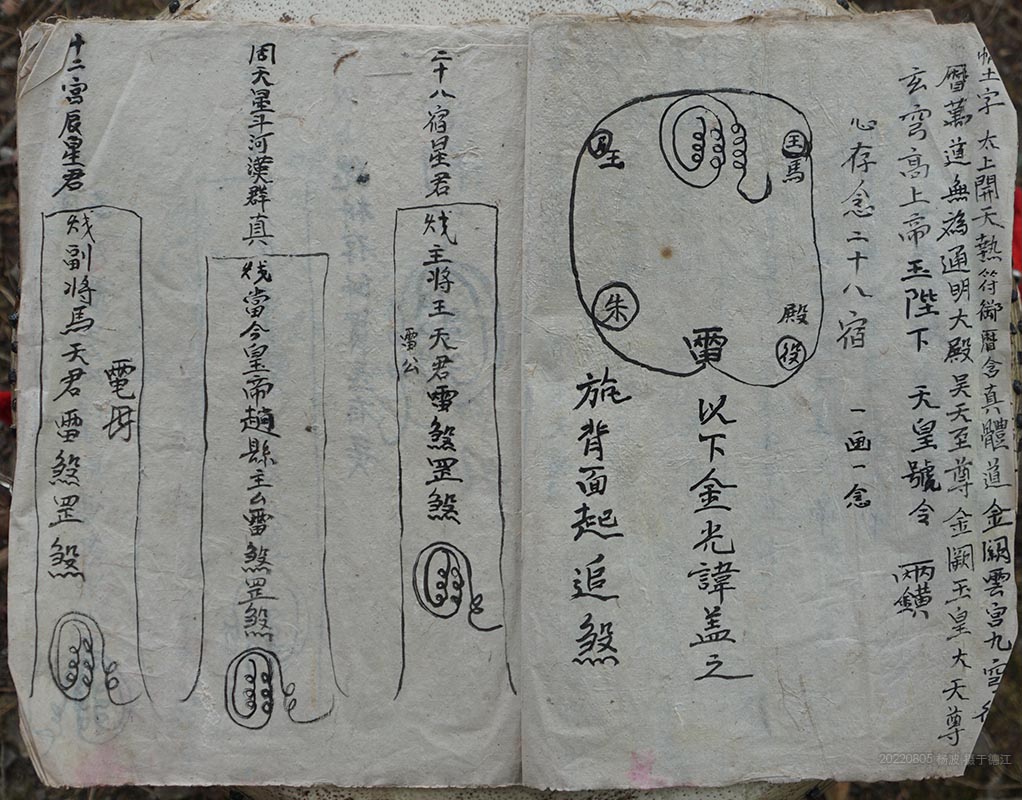 太上開天熱符御曆含真體道金闕雲宮九穹
曆萬道無為通明大殿吴天至尊金闕玉皇大天尊
玄穹高上帝玉陛下 天皇號令
心存念二十八宿 一画一念
馬
殿
役
朱
雷
以下金光諱盖之
旄背面起追煞
二十八宿星君
主將王天君雷煞罡煞
雷公
周天星斗河漢群真
當今皇帝趙縣主公雷煞罡煞
十二宮辰星君
副將馬天君雷煞罡煞
電母
20220805 杨波 摄于德江